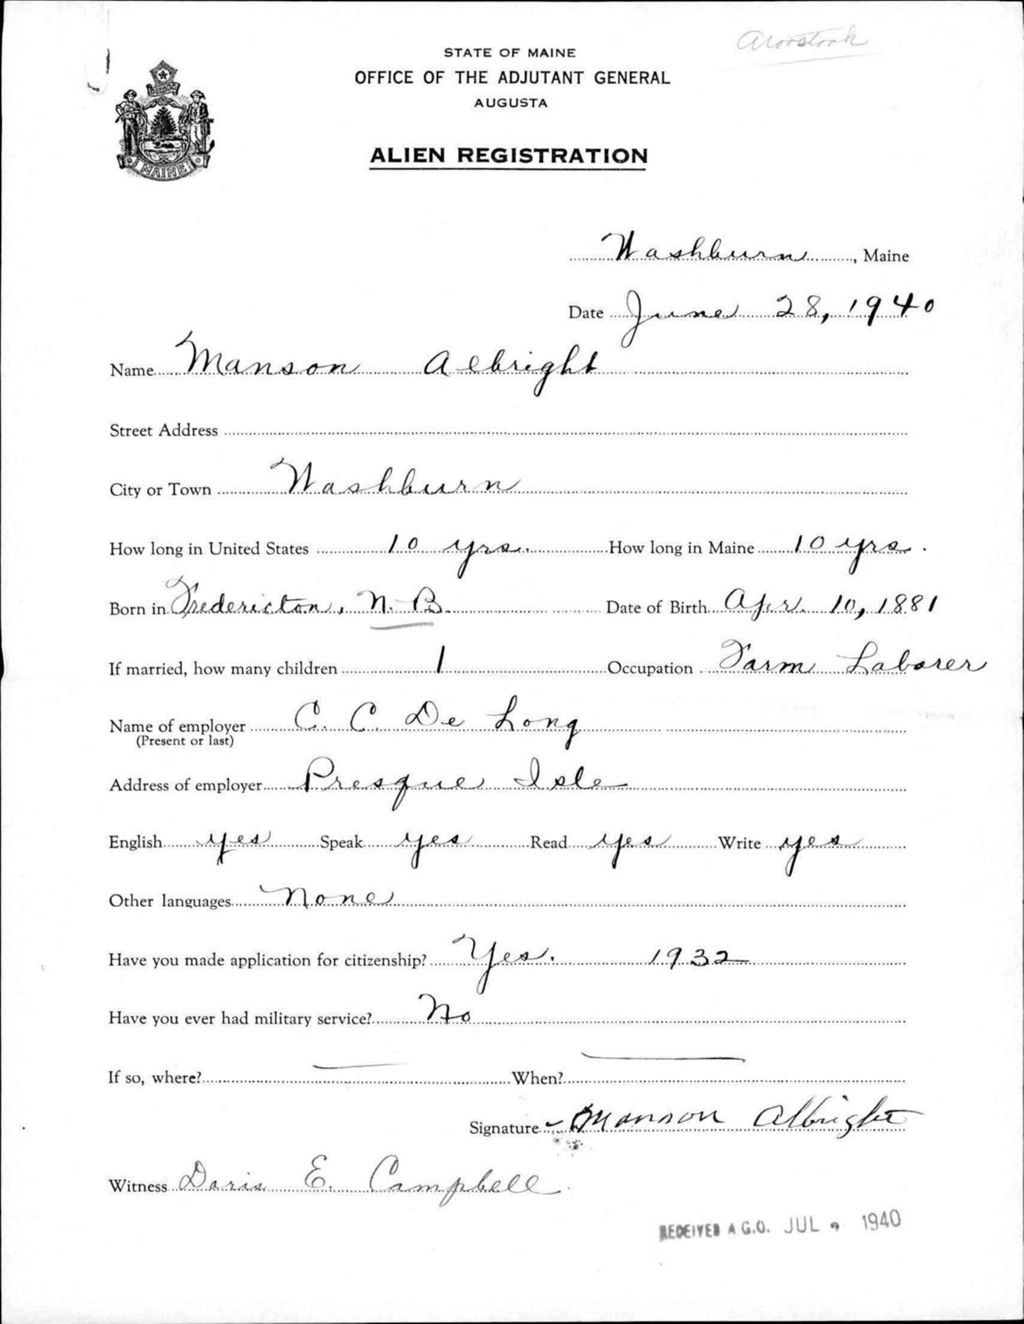 Aroostook
STATE OF MAINE
OFFICE OF THE ADJUTANT GENERAL
AUGUSTA
ALIEN REGISTRATION
MAINE
Washburn, Maine
Date June 28, 1940
Name Manson Albright
Street Address
City or Town Washburn
How long in United States 10 yrs. How long in Maine 10 yrs.
Born in Fredericton, N. B. Date of Birth Apr. 10, 1881
If married, how many children 1 Occupation Farm Laborer
Name of employer C. C. De Long
(Present or last)
Address of employer Presque Isle
English yes Speak yes Read yes Write yes
Other languages None
Have you made application for citizenship? Yes. 1932
Have you ever had military service? No
If so, where? — When? —
Signature Manson Albright
Witness Doris E. Campbell
RECEIVED A.G.O. JUL 1940